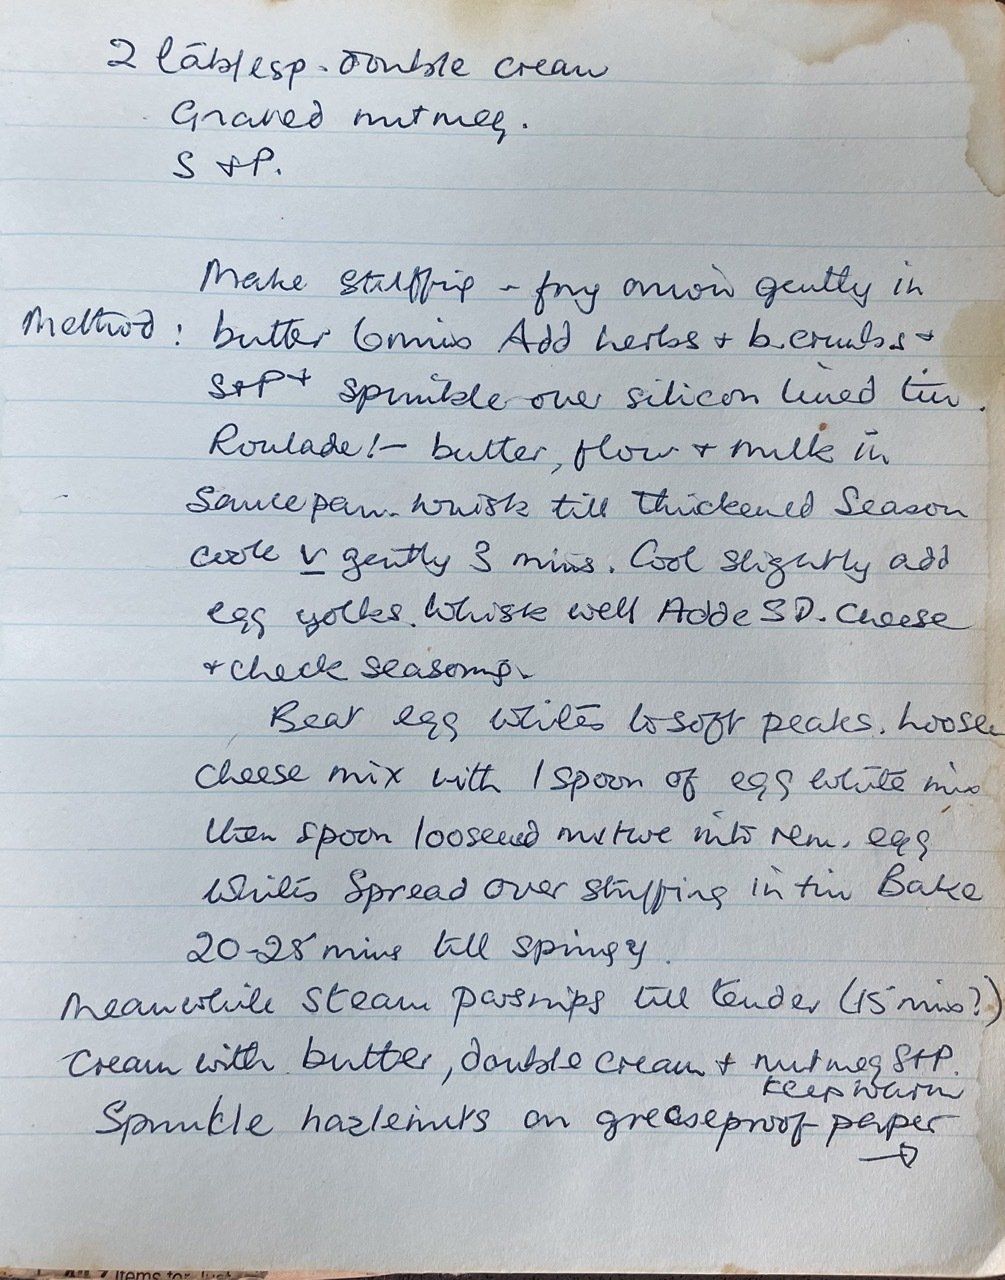 2 tablesp. double cream
Grated nutmeg.
S + P.
Make stuffing - fry onion gently in
Method: butter 6 mins Add herbs + b.crumbs +
S+P + sprinkle over silicon lined tin.
Roulade:- butter, flour + milk in
Saucepan. Whisk till thickened Season
cook v gently 3 mins. Cool slightly add
egg yolks. Whisk well Adde 3D. Cheese
+ check seasoning.
Beat egg whites to soft peaks. Loosen
cheese mix with 1 spoon of egg white mix
then spoon loosened mixture into rem. egg
whites Spread over stuffing in tin Bake
20-25 mins till springy.
Meanwhile steam parsnips till tender (15 mins?)
Cream with butter, double cream + nutmeg S+P.
keep warm
Sprinkle hazlenuts on greaseproof paper
→
All 7 items for just